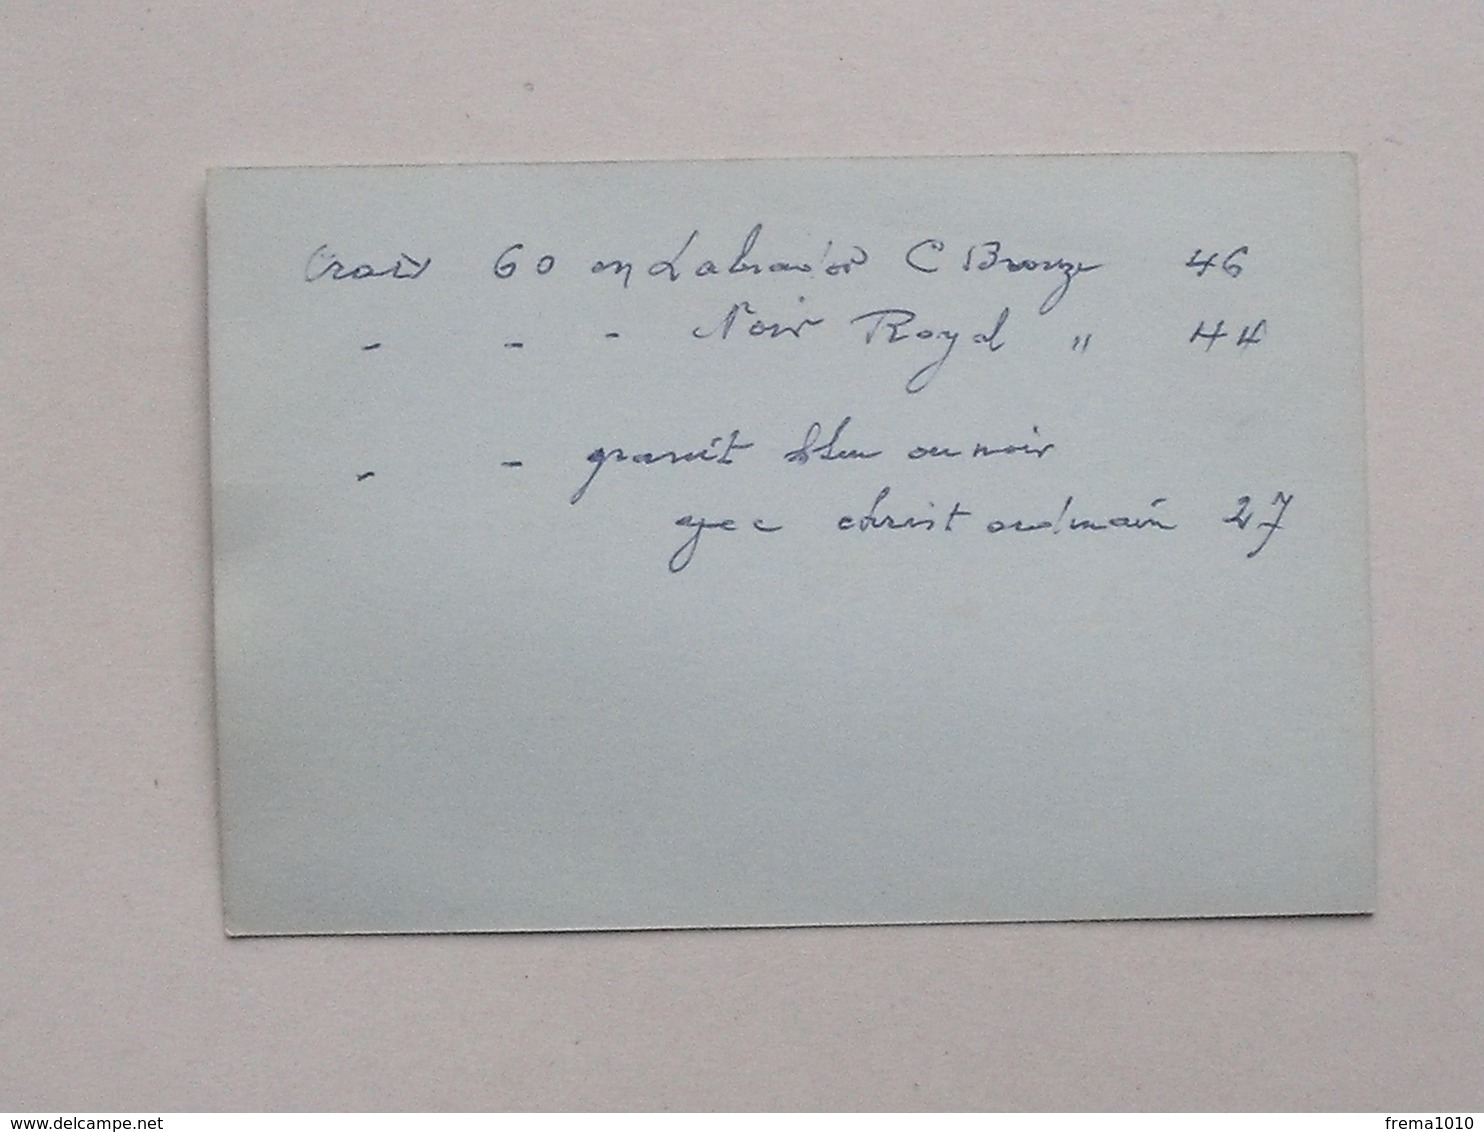 Croix 60 en Labrador C Bronze 46
- - - Noir Royal " 44
- - granit bleu ou noir
avec christ ordinair 27
www.delcampe.net
frema1010